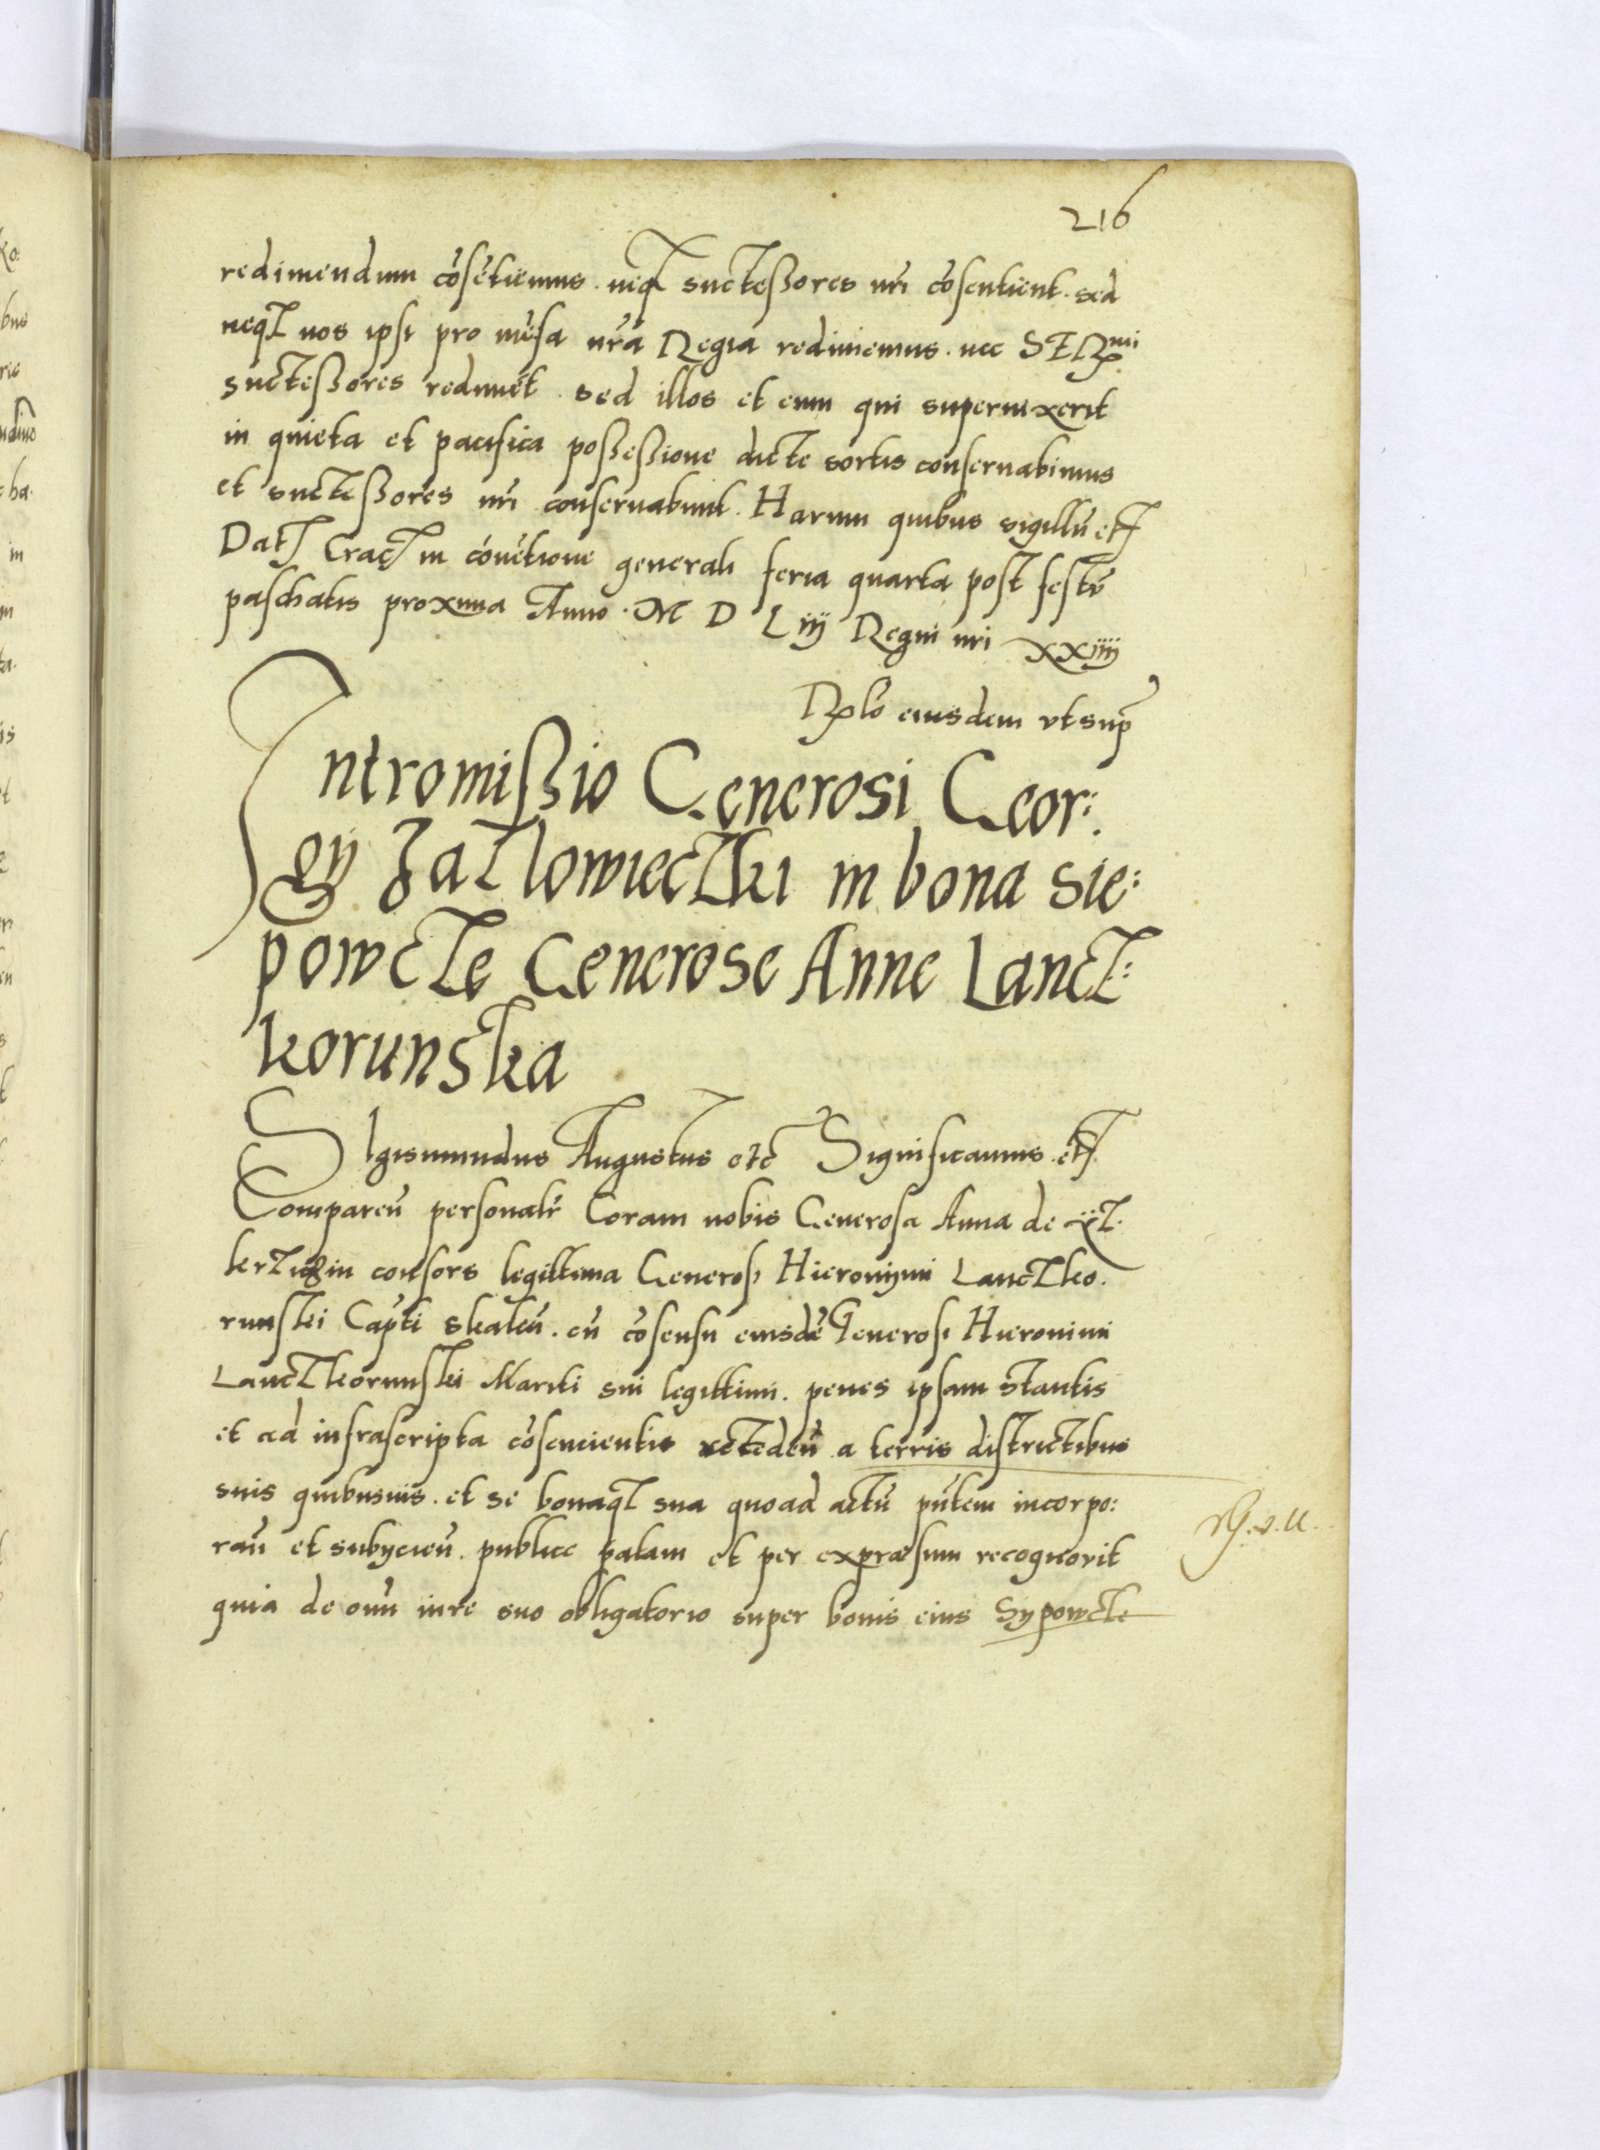 216
redimendum cōsētiemus. neqꝫ successores nr̄i cōsentient. sed
neqꝫ nos ipsi pro mēsa nr̄a Regia redimemus. nec SERmi
successores redimēt. sed illos et eum qui supervixerit
in quieta et pacifica possessione dicte sortis conservabimus
et successores nr̄i conservabunt. Harum quibus sigillū etc
Datꝫ Cracꝫ in cōvētione generali feria quarta post festū
paschatis proxima Anno. M D Liij Regni nr̄i xxiiij
Rlō eiusdem vt sup
Intromissio Generosi Geor:
gij Zaslowieczki in bona Sie:
powcze Generose Anne Lancz:
korunska
SIgismundus Augustus etc Significamus. etc
Comparen̄ personalr̄ Coram nobis Generosa Anna de
consors legittima Generosi Hieronymi Lanczko.
runski Capti Skalen̄. cū cōsensu eiusdē Generosi Hieronimi
Lanczkorunski Mariti sui legittimi. penes ipsam stantis
et ad infrascripta cōsencientis recedeñ a terris districtibus
suis quibusvis. et se bonaqꝫ sua quoad actū pn̄tem incorpo:
ran̄ et subijcien̄. publice palam et per expraesum recognovit
quia de omn̄ iure suo obligatorio super bonis eius Sypowcze